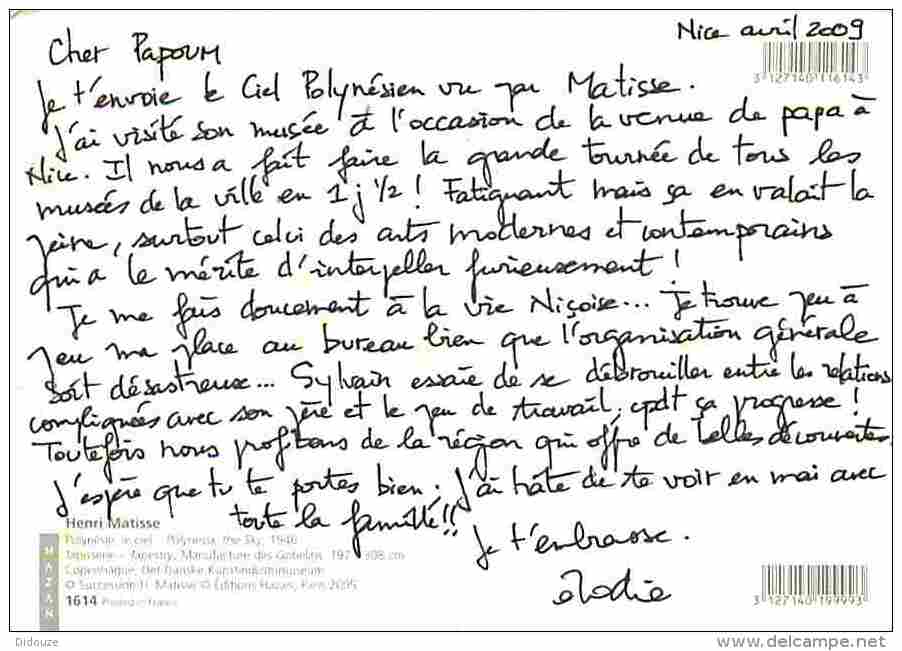 Nice avril 2009
3 127140 116143
Cher Papoum
Je t'envoie le Ciel Polynésien vu par Matisse.
J'ai visité son musée à l'occasion de la venue de papa à
Nice. Il nous a fait faire la grande tournée de tous les
musées de la ville en 1 j 1/2 ! Fatiguant mais ça en valait la
peine, surtout celui des arts modernes et contemporains
qui a le mérite d'interpeller furieusement !
Je me fais doucement à la vie Niçoise... Je trouve peu à
peu ma place au bureau bien que l'organisation générale
soit désastreuse... Sylvain essaie de se débrouiller entre les relations
compliquées avec son père et le peu de travail, cpdt ça progresse !
Toutefois nous profitons de la région qui offre de telles découvertes.
J'espère que tu te portes bien. J'ai hâte de te voir en mai avec
toute la famille !!
Je t'embrasse.
élodie
Henri Matisse
Polynésie, le ciel - Polynesia, the Sky, 1946
Tapisserie - Tapestry, Manufacture des Gobelins, 197 308 cm
Copenhague, Det Danske Kunstindustrimuseum
© Succession H. Matisse © Éditions Hazan, Paris 2005
1614 Printed in France
HAZAN
3 127140 199993
Didouze
www.delcampe.net